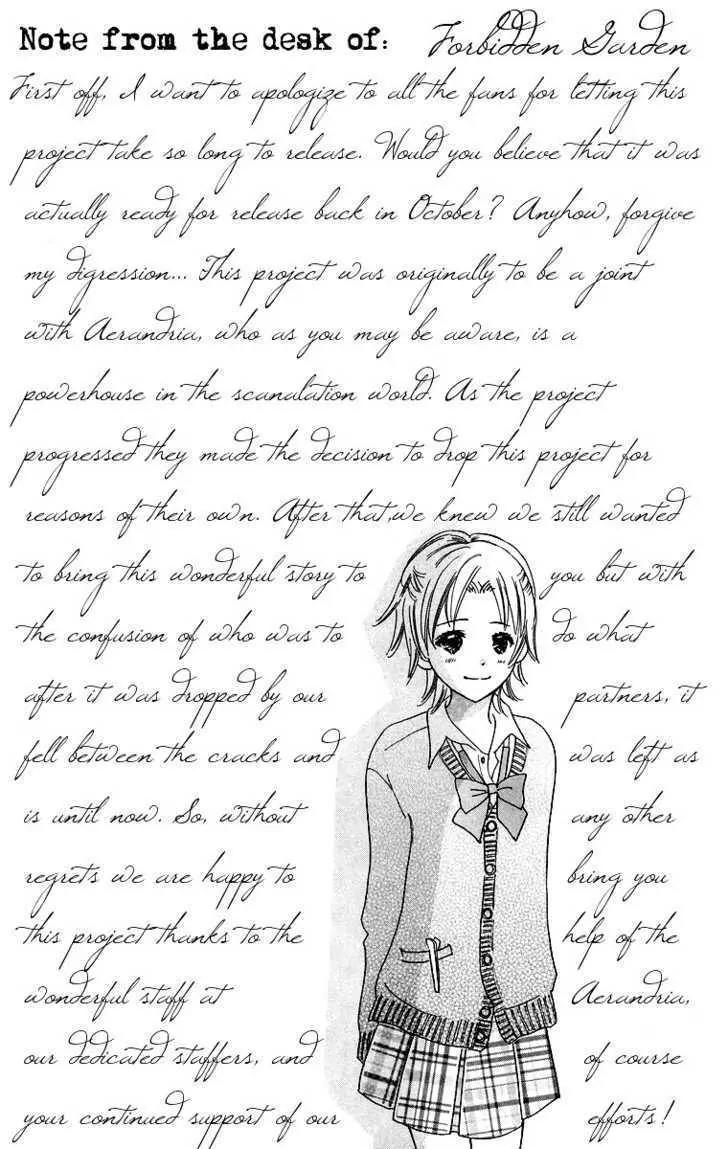 Note from the desk of: Forbidden Garden
First off, I want to apologize to all the fans for letting this
project take so long to release. Would you believe that it was
actually ready for release back in October? Anyhow, forgive
my digression... This project was originally to be a joint
with Aerandria, who as you may be aware, is a
powerhouse in the scanalation world. As the project
progressed they made the decision to drop this project for
reasons of their own. After that,we knew we still wanted
to bring this wonderful story to you but with
the confusion of who was to do what
after it was dropped by our partners, it
fell between the cracks and was left as
is until now. So, without any other
regrets we are happy to bring you
this project thanks to the help of the
wonderful staff at Aerandria,
our dedicated staffers, and of course
your continued support of our efforts!